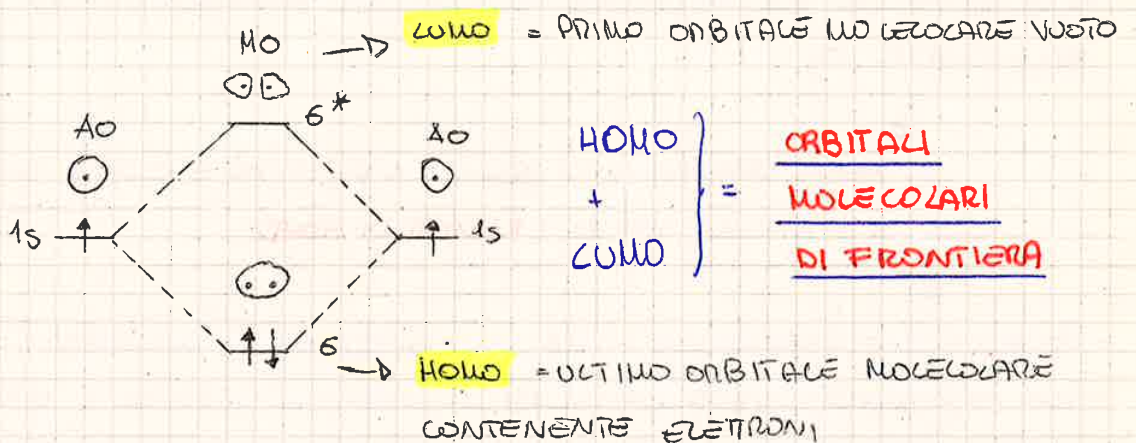 MO → LUMO = PRIMO ORBITALE MOLECOLARE VUOTO
σ*
AO AO
HOMO
+
LUMO
=
ORBITALI
MOLECOLARI
DI FRONTIERA
1s 1s
σ
→ HOMO = ULTIMO ORBITALE MOLECOLARE
CONTENENTE ELETTRONI